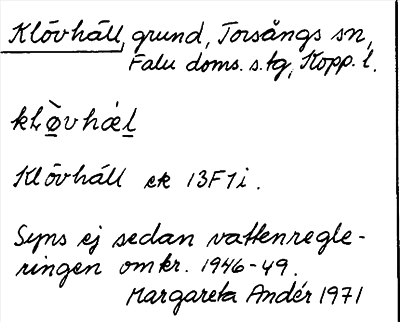 Klövhäll, grund, Torsångs sn,
Falu doms. s. tg, Kopp. l.
kLò̲vhæl̲
Klövhäll ek 13F1i.
Syns ej sedan vattenregle-
ringen omkr. 1946-49.
Margareta Andér 1971